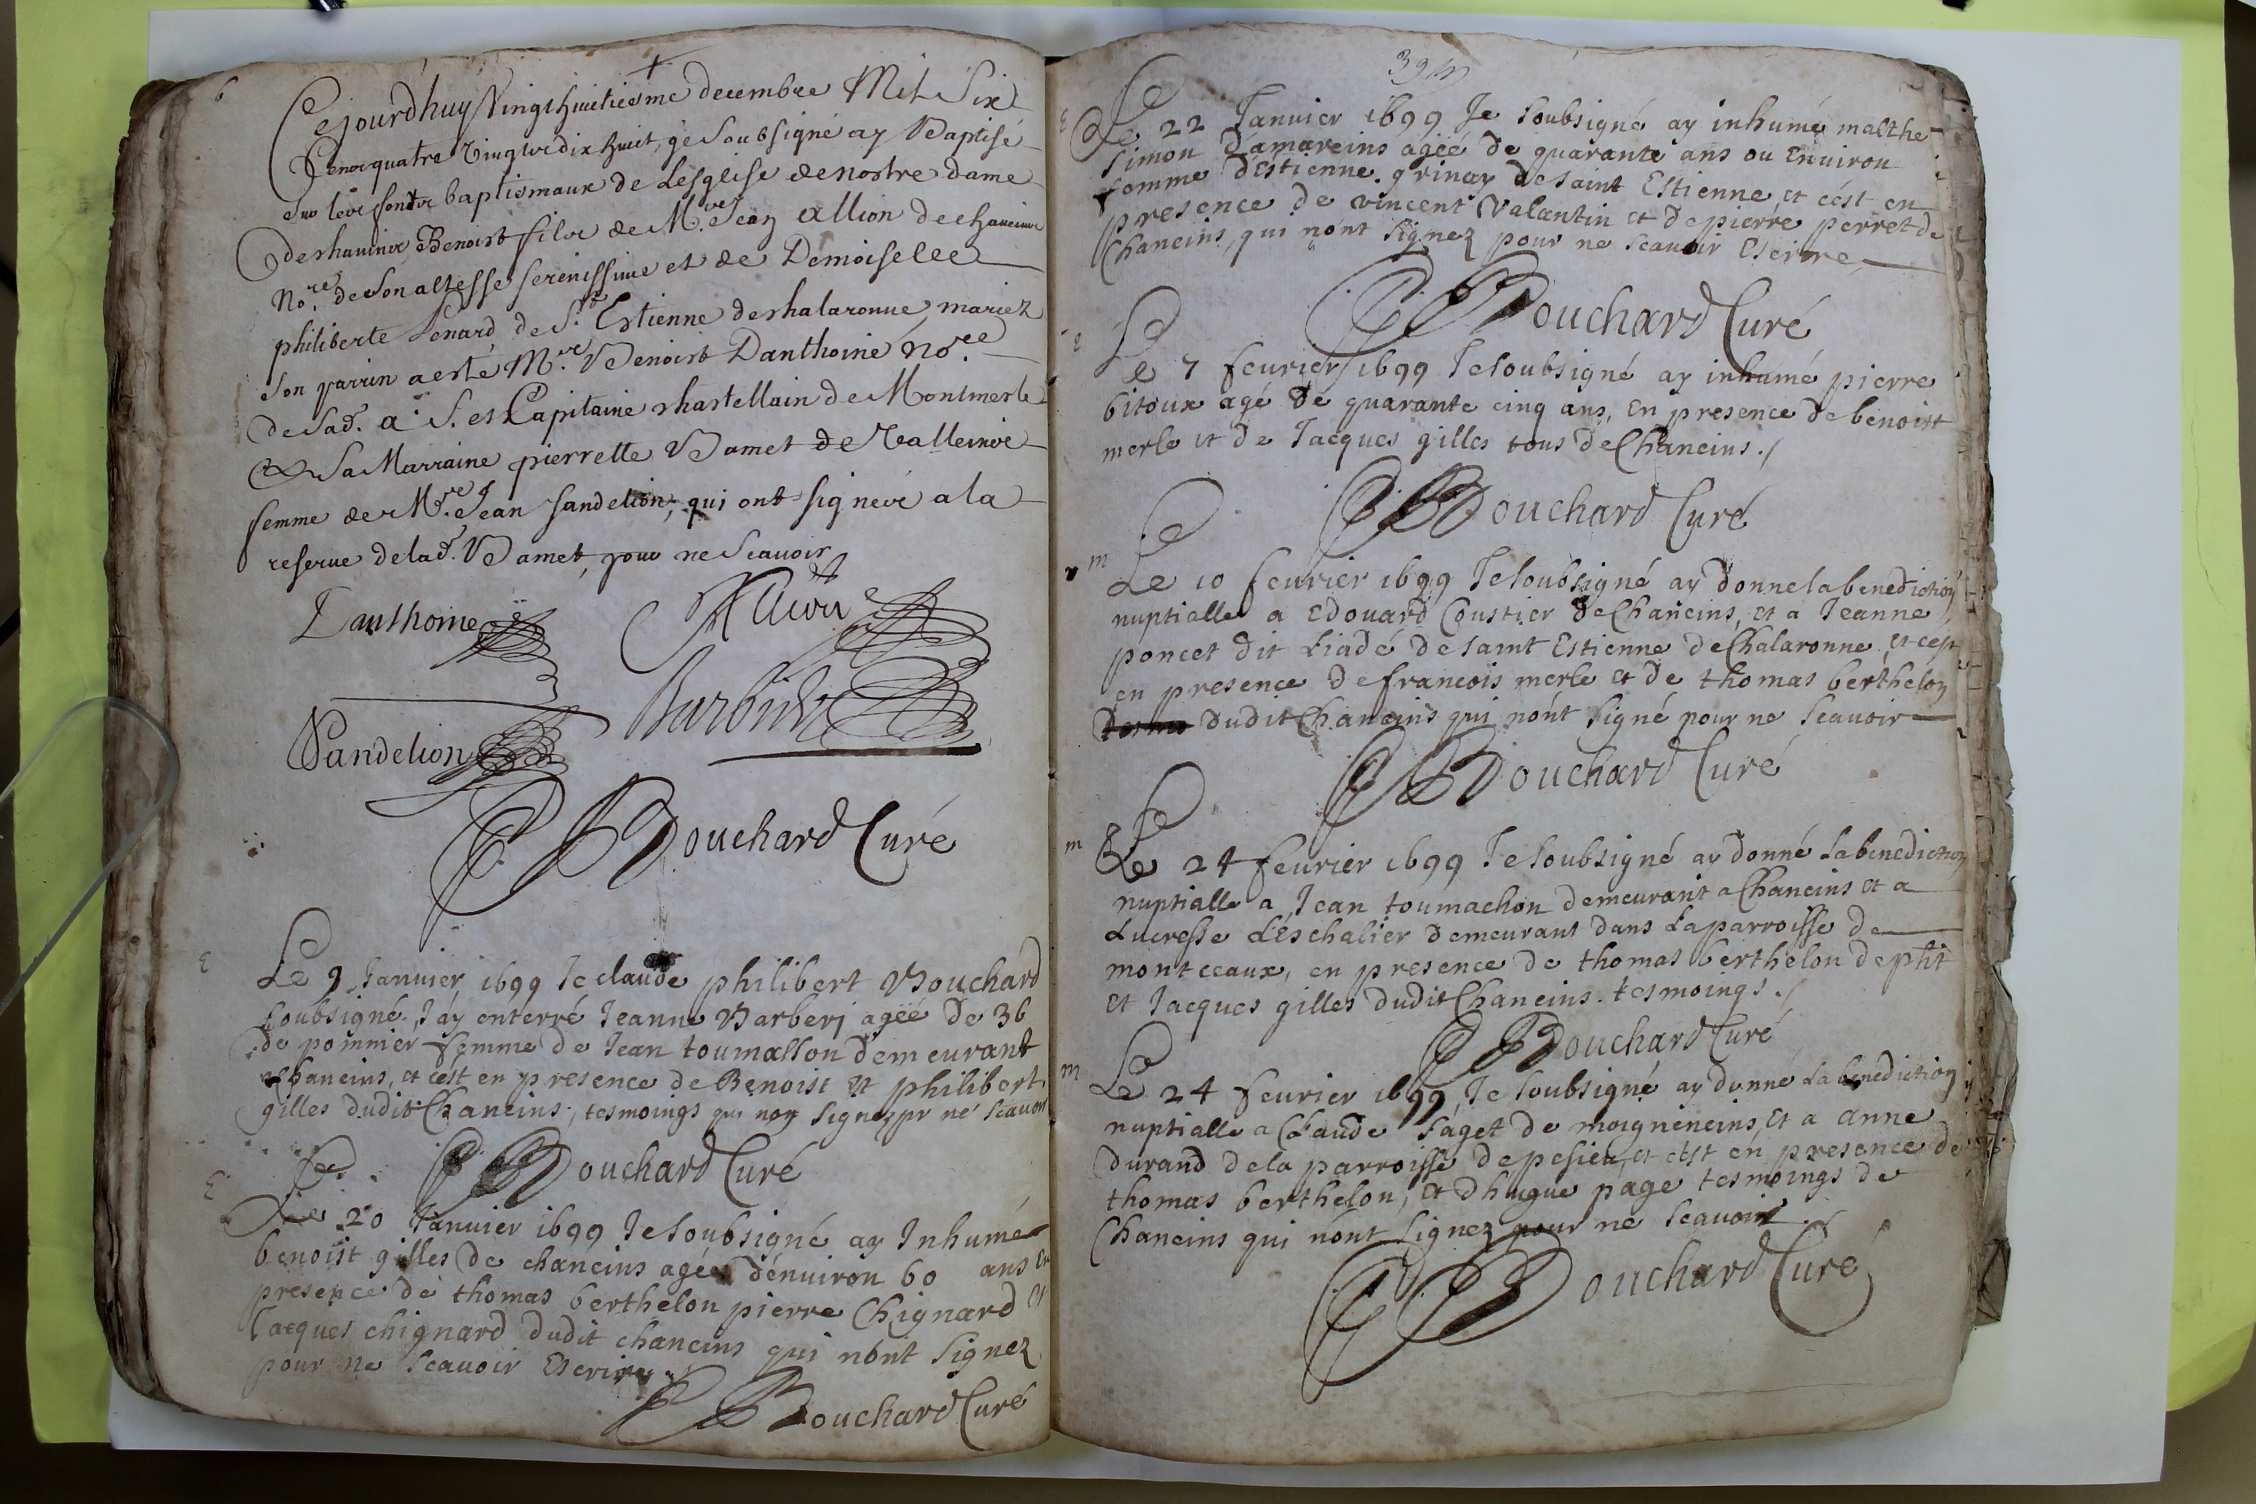 b
Cejourdhuy Vingt huictiesme decembre Mil Six
Cens quatre Vingts dix huit, je Soubsigné ay Baptisé
Sur les fonds baptismaux de Lesglise de nostre dame
de chaneins Benoist fils de Mre Jean Allion de chaneins
Nore de Son altesse serenissime et de Demoiselle
philiberte Lenard, de St Estienne de chalaronne, mariez
Son parrin a esté Mre Benoist Danthoine Nore
de Sad. A. S. et Capitaine chastellain de Montmerle
et Sa Marraine pierrette Bamet de Valleins
femme de Mre Jean Sandelion, qui ont signéz a la
reserve de lad. Bamet, pour ne Scavoir
Danthoine Allion
Sandelion
Bouchard Curé
E
Le 9 Janvier 1699 Je claude philibert Bouchard
soubsigné, J'ay enterré Jeanne Barberj agéé de 36
de pommier femme de Jean toumasson demeurant
chaneins, et cést en presence de Benoist et philibert
gilles dudit Chaneins, tesmoings qui non signez pr ne scavoir
Bouchard Curé
E
Le 20 Janvier 1699 Je soubsigné ay Inhumé
benoist gilles de chaneins agéé dénviron 60 ans en
presence de thomas berthelon pierre Chignard et
Jacques chignard dudit chaneins qui nónt signez
pour ne scavoir Escrire
Bouchard Curé
39
E
Le 22 Janvier 1699 Je soubsigné ay inhumé malthe
simon d'amareins agéé de quarante ans ou Environ
femme d'Estienne grinay de saint Estienne et cést en
presence de vincent Valantin et de pierre perret de
Chaneins, qui nónt signez pour ne scavoir Escrire
Bouchard Curé
E
Le 7 fevrier 1699 Je soubsigné ay inhumé pierre
bitoux agé de quarante cinq ans, en presence de benoist
merle et de Jacques gilles tous de Chaneins./
Bouchard Curé
m
Le 10 fevrier 1699 Je soubsigné ay donné la benediction
nuptialle a Edouard Coustier de Chaneins, et a Jeanne
poncet dit Liadé de saint Estienne de Chalaronne, et cést
en presence de francois merle et de thomas berthelon
dudit Chaneins qui nónt signé pour ne scavoir
Bouchard Curé
m
Le 24 fevrier 1699 Je soubsigné ay donné La benediction
nuptialle a Jean toumachon demeurant a Chaneins et a
Lucresse L'Eschalier demeurant dans La parroisse de
montceaux, en presence de thomas berthelon de ptit
et Jacques gilles dudit Chaneins. tesmoings./
Bouchard Curé
m
Le 24 fevrier 1699, Je soubsigné ay donné La benediction
nuptialle a Claude saget de moigneneins, et a anne
durand de la parroisse de pesieu, et cést en presence de
thomas berthelon, et dhugue page tesmoings de
Chaneins qui nónt signez pour ne scavoir
Bouchard Curé